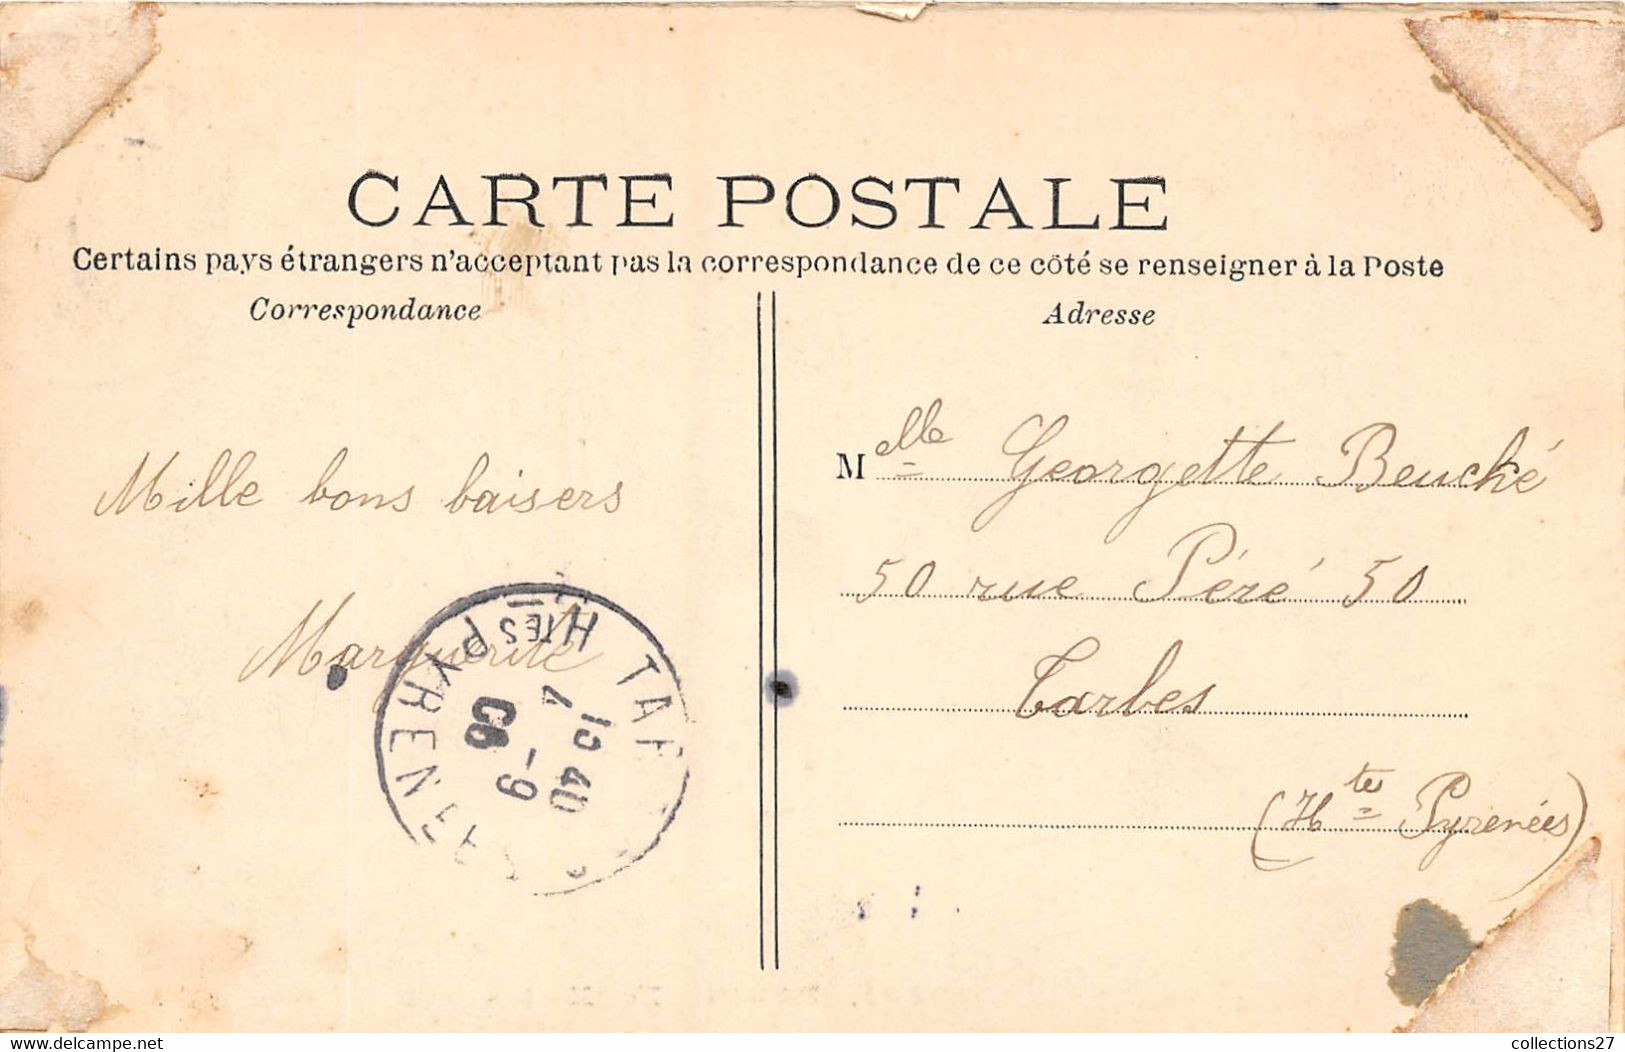 CARTE POSTALE
Certains pays étrangers n'acceptant pas la correspondance de ce côté se renseigner à la Poste
Correspondance
Adresse
Mille bons baisers
Marguerite
Melle Georgette Beuché
50 rue Péré 50
Tarbes
(Hte Pyrénées)
HTES PYRENEES
15 40
collections27